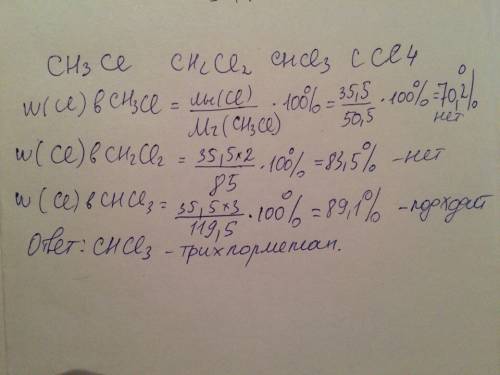 CH3Cl CH2Cl2 CHCl3 CCl4
w(Cl) в CH3Cl = Mr(Cl)/Mr(CH3Cl) · 100% = 35,5/50,5 · 100% = 70,2% нет
w(Cl) в CH2Cl2 = 35,5×2/85 · 100% = 83,5% - нет
w(Cl) в CHCl3 = 35,5×3/119,5 · 100% = 89,1% - подходит
Ответ: CHCl3 - трихлорметан.